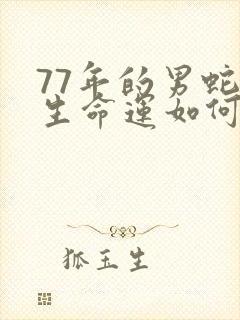 77年的男蛇
生命运如何
狐玉生